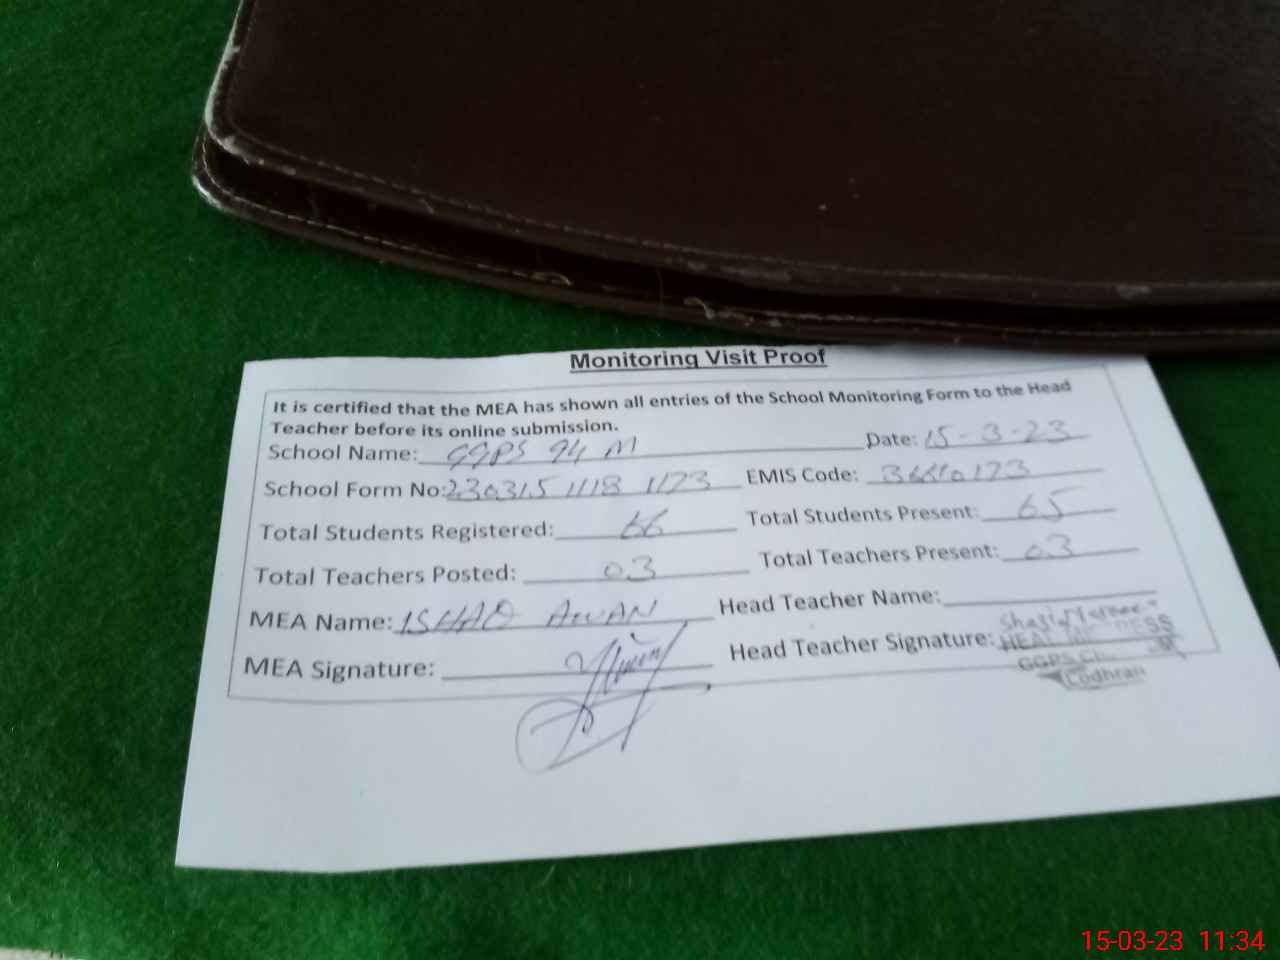 Monitoring Visit Proof
It is certified that the MEA has shown all entries of the School Monitoring Form to the Head
Teacher before its online submission.
School Name: GGPS 94 M Date: 15-3-23
School Form No: 230315 1118 1173 EMIS Code:
Total Students Registered: 66 Total Students Present: 65
Total Teachers Posted: 03 Total Teachers Present: 03
MEA Name: ISHAQ AWAN Head Teacher Name:
MEA Signature: Head Teacher Signature:
GGPS
Lodhran
15-03-23 11:34